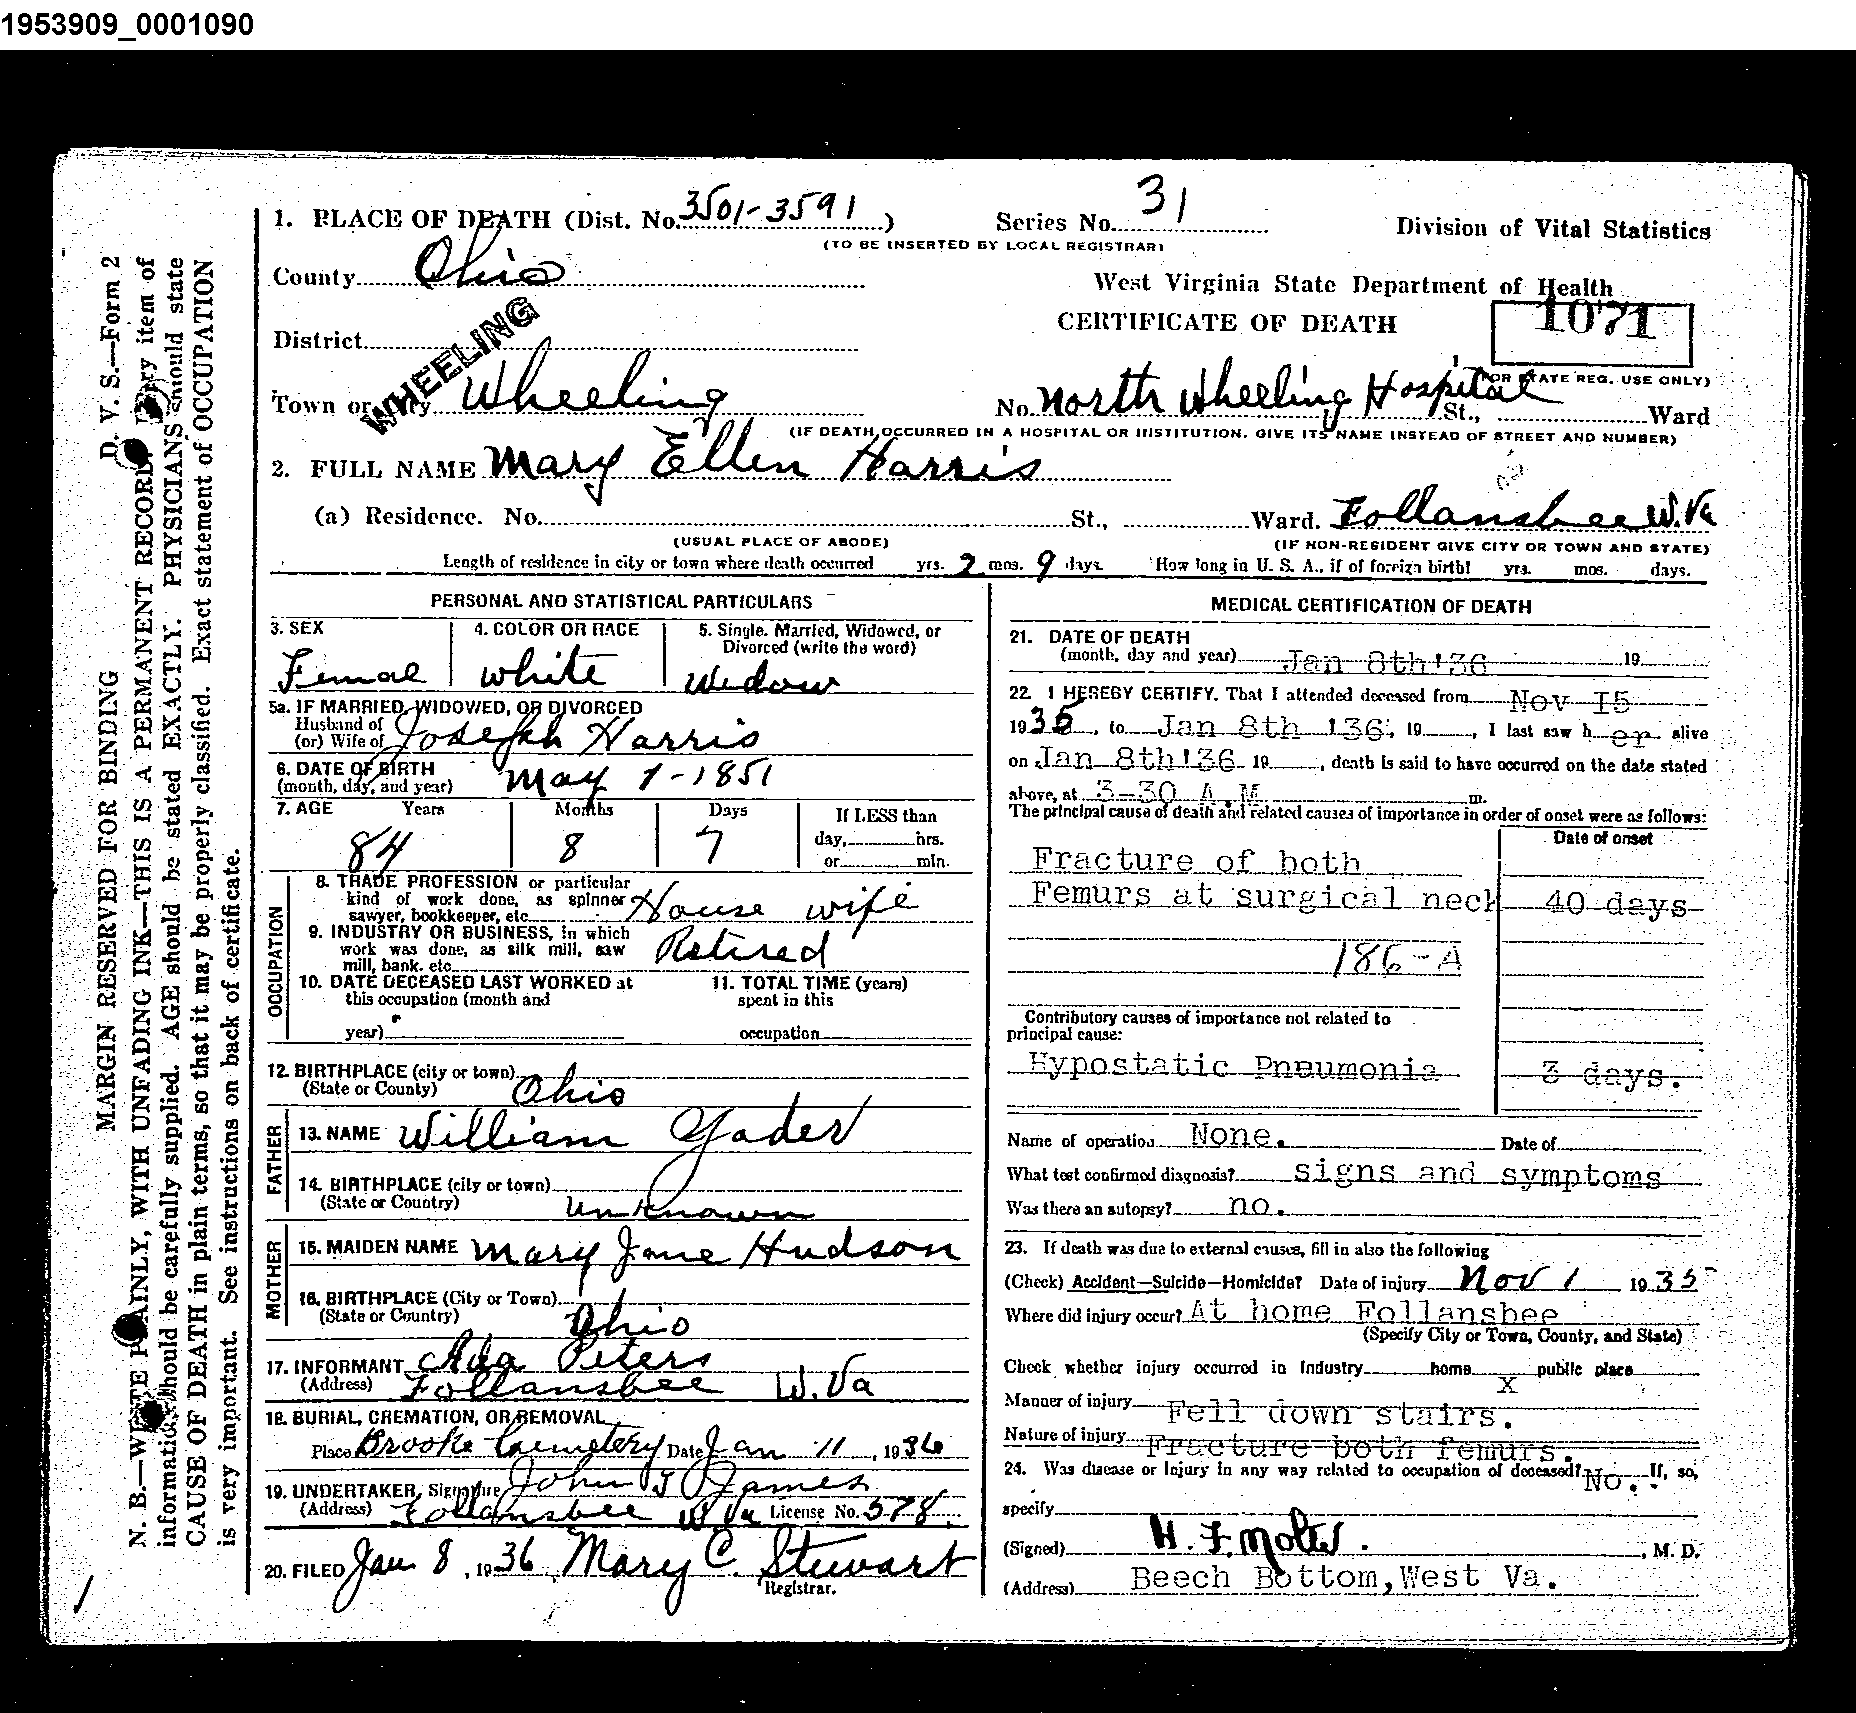 1953909_0001090
1. PLACE OF DEATH (Dist. No. 3501-3591)
Series No. 31
Division of Vital Statistics
(TO BE INSERTED BY LOCAL REGISTRAR)
County Ohio
West Virginia State Department of Health
CERTIFICATE OF DEATH
1071
(FOR STATE REG. USE ONLY)
District
WHEELING
Town or City Wheeling
No. North Wheeling Hospital St., Ward
(IF DEATH OCCURRED IN A HOSPITAL OR INSTITUTION, GIVE ITS NAME INSTEAD OF STREET AND NUMBER)
2. FULL NAME Mary Ellen Harris
(a) Residence. No. St., Ward. Follansbee W. Va
(USUAL PLACE OF ABODE) (IF NON-RESIDENT GIVE CITY OR TOWN AND STATE)
Length of residence in city or town where death occurred yrs. 2 mos. 9 days. How long in U. S. A., if of foreign birth? yrs. mos. days.
PERSONAL AND STATISTICAL PARTICULARS
3. SEX
Female
4. COLOR OR RACE
White
5. Single, Married, Widowed, or
Divorced (write the word)
Widow
5a. IF MARRIED, WIDOWED, OR DIVORCED
Husband of
(or) Wife of Joseph Harris
6. DATE OF BIRTH
(month, day, and year) May 1-1851
7. AGE Years Months Days If LESS than
84 8 7 day, hrs.
or min.
OCCUPATION
8. TRADE PROFESSION or particular
kind of work done, as spinner
sawyer, bookkeeper, etc. House wife
9. INDUSTRY OR BUSINESS, in which
work was done, as silk mill, saw
mill, bank, etc. Retired
10. DATE DECEASED LAST WORKED at
this occupation (month and
year)
11. TOTAL TIME (years)
spent in this
occupation
12. BIRTHPLACE (city or town)
(State or County) Ohio
FATHER
13. NAME William Yader
14. BIRTHPLACE (city or town)
(State or Country) Unknown
MOTHER
15. MAIDEN NAME Mary Jane Hudson
16. BIRTHPLACE (City or Town)
(State or Country) Ohio
17. INFORMANT Ada Peters
(Address) Follansbee W. Va
18. BURIAL, CREMATION, OR REMOVAL
Place Brooke Cemetery Date Jan 11, 1936
19. UNDERTAKER, Signature John J James
(Address) Follansbee W Va License No. 578
20. FILED Jan 8, 1936, Mary C. Stewart
Registrar.
MEDICAL CERTIFICATION OF DEATH
21. DATE OF DEATH
(month, day and year) Jan 8th'36 19
22. I HEREBY CERTIFY. That I attended deceased from Nov 15
1935, to Jan 8th '36, 19, I last saw her alive
on Jan 8th'36 19, death is said to have occurred on the date stated
above, at 3-30 A.M m.
The principal cause of death and related causes of importance in order of onset were as follows:
Date of onset
Fracture of both
Femurs at surgical neck 40 days
186-A
Contributory causes of importance not related to
principal cause:
Hypostatic Pneumonia 3 days.
Name of operation None. Date of
What test confirmed diagnosis? signs and symptoms
Was there an autopsy? no.
23. If death was due to external causes, fill in also the following
(Check) Accident—Suicide—Homicide? Date of injury Nov 1 1935
Where did injury occur? At home Follansbee
(Specify City or Town, County, and State)
Check whether injury occurred in Industry home public place
x
Manner of injury Fell down stairs.
Nature of injury Fracture both femurs.
24. Was disease or injury in any way related to occupation of deceased? No. If, so,
specify
(Signed) H. F. Molter. , M. D.
(Address) Beech Bottom, West Va.
D. V. S.—Form 2
MARGIN RESERVED FOR BINDING
N. B.—WRITE PLAINLY, WITH UNFADING INK—THIS IS A PERMANENT RECORD. Every item of
information should be carefully supplied. AGE should be stated EXACTLY. PHYSICIANS should state
CAUSE OF DEATH in plain terms, so that it may be properly classified. Exact statement of OCCUPATION
is very important. See instructions on back of certificate.